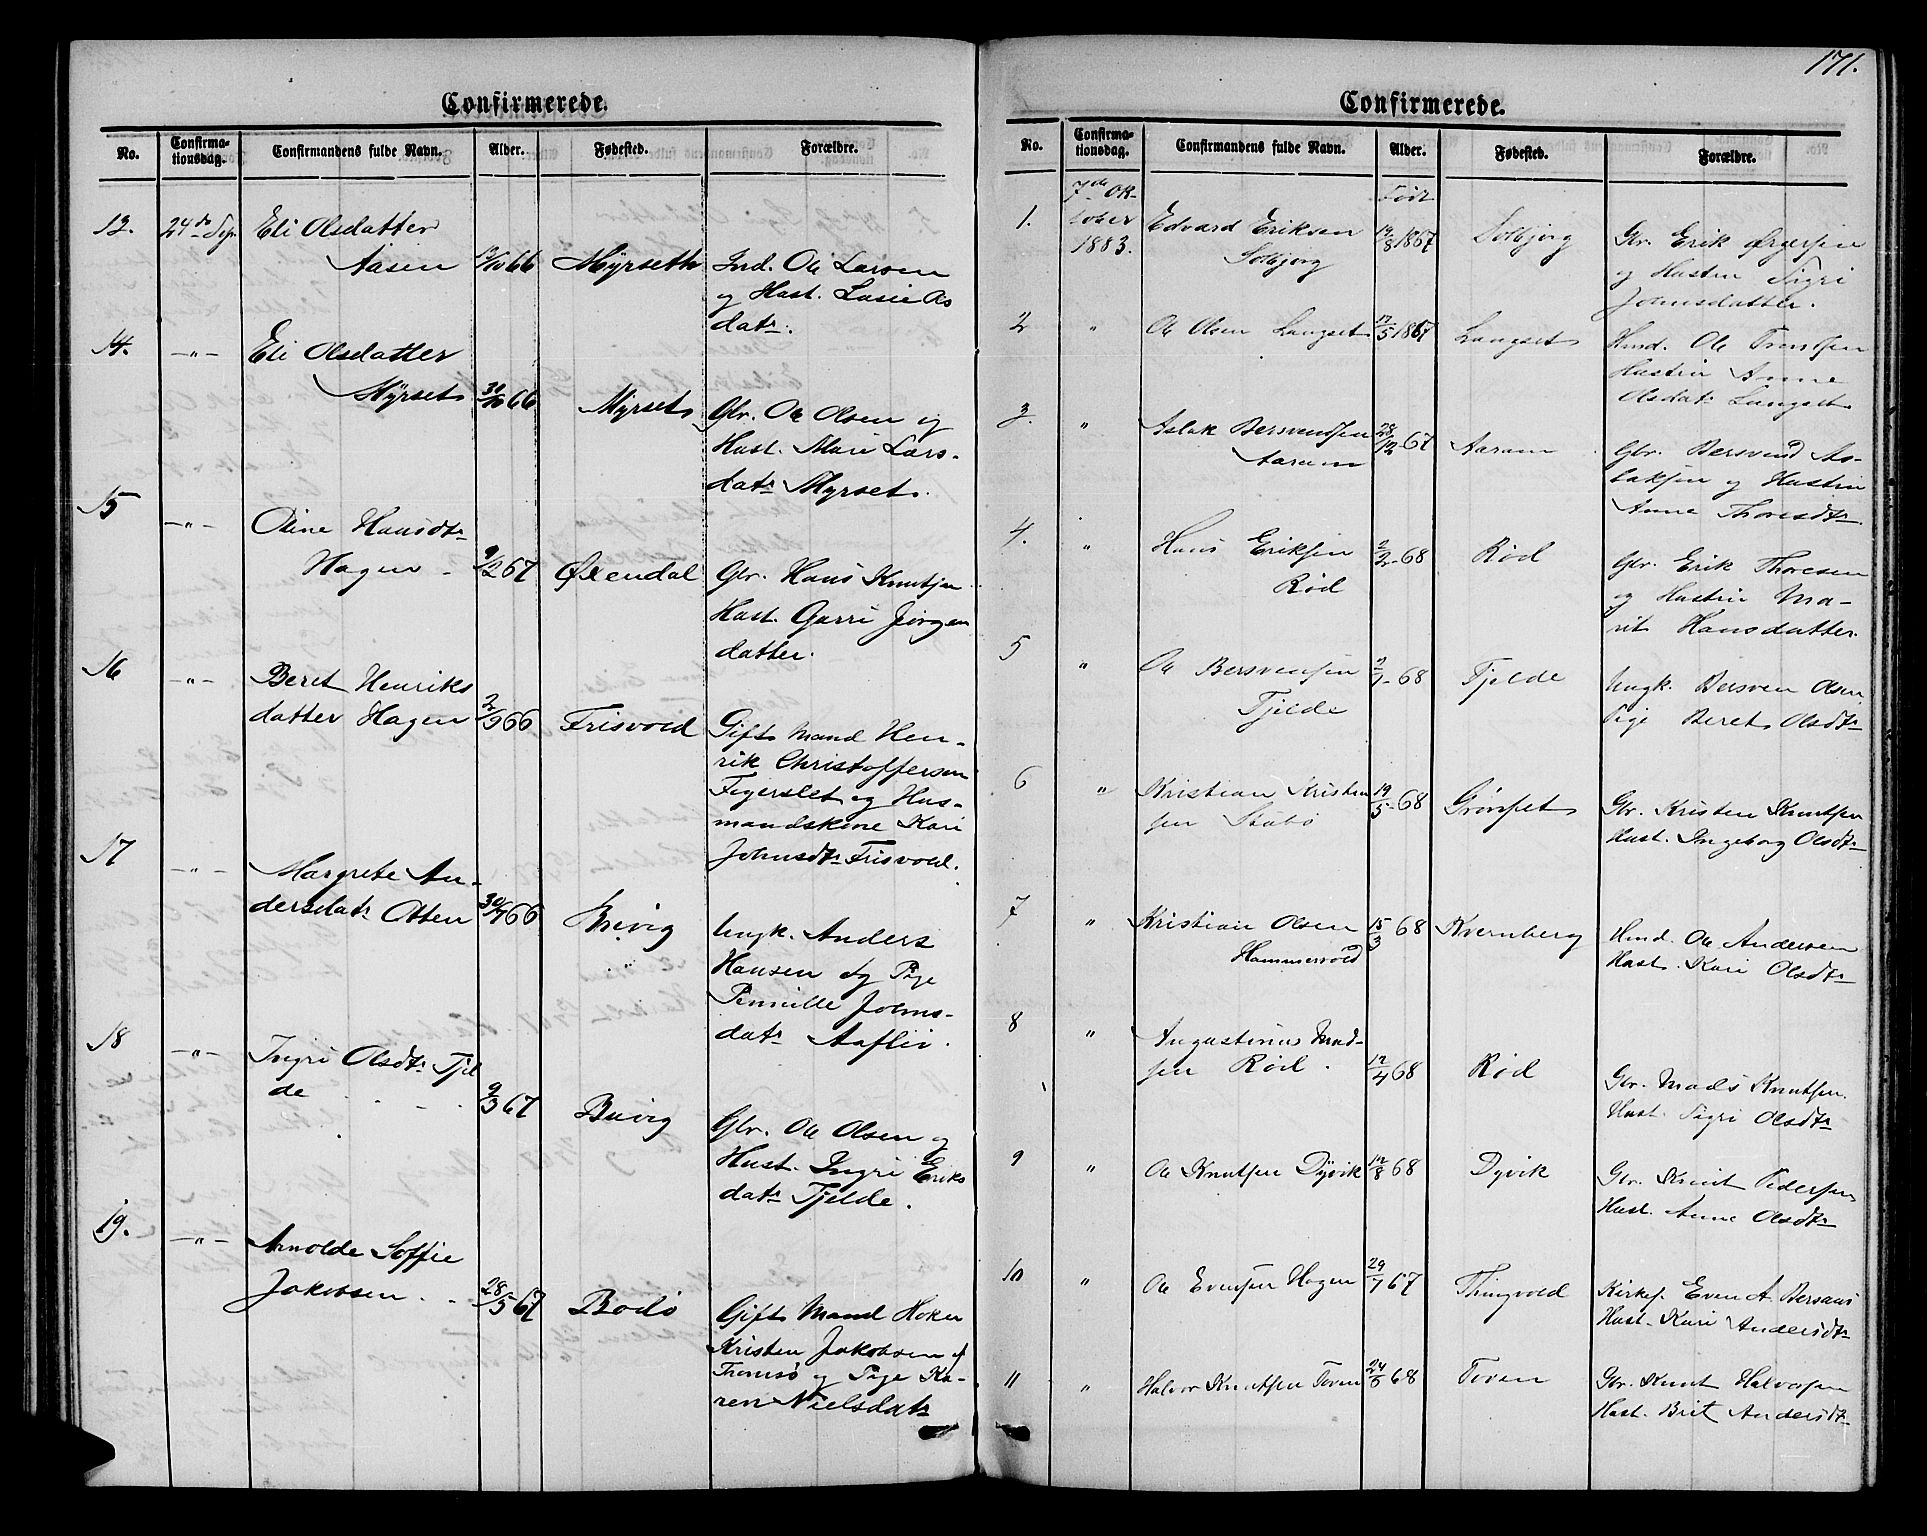 Confirmerede.
No. Confirma-
tionsdag. Confirmandens fulde Navn. Alder. Fødested. Forældre.
13. 24de Sep. Eli Olsdatter
Aasen /10 66 Myrseth Ind. Ole Larsen
og Hast. Lasie
datr.
14. -"- Eli Olsdatter
Myrset 30/10 66 Myrset Gbr. Ole Olsen og
Hust. Mari Lars-
datr Myrset.
15 -"- Oline Hansdtr
Hagen 9/2 67 Øxendal Gbr. Hans Knutsen
Hust. Gurri Jörgen
datter.
16 -"- Beret Henriks
datter Hagen 2/9 66 Frisvold Gift Mand Hen-
rik Christoffersen
Fegerslet og Hus-
mandskone Kari
Johnsdtr Frisvold.
17 -"- Margrete An-
dersdatr Otten 30/7 66 Brevig Ungk. Anders
Hansen og Pige
Pernille Johns-
datr Aaflöi.
18 -"- Ingri Olsdtr Tjel
de 9/3 67 Buvig Gbr. Ole Olsen og
Hust. Ingri Eriks
datr Tjelde.
19. -"- Arnolde Soffie
Jakobsen 28/5 67 Bodö Gift Mand Hoken
Kristen Jakobsen af
Tromsö og Pige Ka-
ren Nielsdatr
171.
Confirmerede.
No. Confirma-
tionsdag. Confirmandens fulde Navn. Alder. Fødested. Forældre.
7de Ok- Född
1. tober Edvard Eriksen 19/8 1867 Solbjørg Gbr. Erik
1883. Solbjørg og Hustru Sigri
Johnsdatter.
2 " Ole Olsen Langset 17/5 1867 Langset Hmd. Ole
Hustru Anne
Olsdatr Langset
3. " Aslak Bersvendsen
Aaram 28/12 67 Aaram Gbr. Bersvend As-
laksen og Hustru
Anne Thoresdtr
4. " Hans Eriksen
Rød 2/2 68 Rød Gbr. Erik Thoresen
og Hustru Ma-
rit Hansdatter.
5 " Ole Bersvensen
Tjelde 2/1 68 Tjelde Ungk. Bersven Olsen,
Pige Beret Olsdtr
6 " Kristian Kristen
sen Stabö 19/5 68 Grönset Gbr. Kristen Knutsen
Hust. Ingeborg Olsdtr
7 " Kristian Olsen
Hammervold 15/3 68 Kvernberg Hmd. Ole Andersen
Hust. Kari Olsdtr
8 " Augustinus Mad-
sen Rød. 12/4 68 Rød Gbr. Mads Knutsen.
Hust. Sigri Olsdtr
9 " Ole Knutsen Dyvik 12/8 68 Dyvik Gbr. Knut Pedersen
Hust. Anne Olsdtr
10 " Ole Evensen Hagen 29/7 67 Thingvold Kirkes. Even A. Bersaas
Hust. Kari Andersdtr
11 " Halvor Knutsen Toven 24/5 68 Toven Gbr. Knut Halvorsen
Hust. Brit Andersdtr